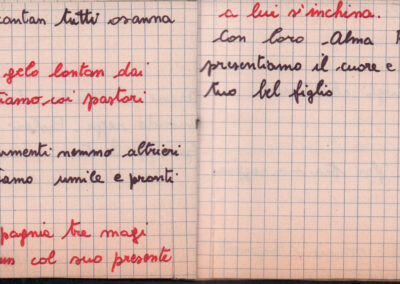 cantan tutti osanna
gelo lontan dai
iamo coi pastori
umenti nemmo altrieri
iamo umile e pronti
pagnia tre magi
un col suo presente
a lui s'inchina.
Con loro Alma
presentiamo il cuore e
tuo bel figlio